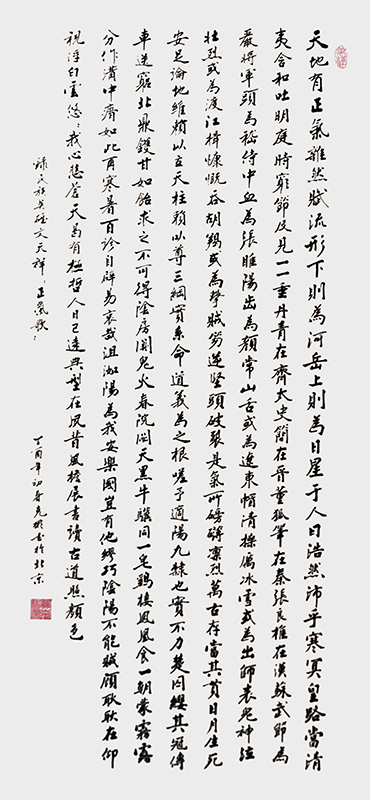 天地有正氣雜然賦流形下則為河岳上則為日星于人曰浩然沛乎塞冥皇路當清
夷含和吐明庭時窮節及見一一垂丹青在齊太史簡在晉董狐筆在秦張良椎在漢蘇武節為
嚴將軍頭為嵇侍中血為張睢陽齒為顏常山舌或為遼東帽清操厲冰雪或為出師表鬼神泣
壯烈或為渡江楫慷慨吞胡羯或為擊賊笏逆豎頭破裂是氣所磅礴凜烈萬古存當其貫日月生死
安足論地維賴以立天柱賴以尊三綱實系命道義為之根嗟予遘陽九隸也實不力楚囚纓其冠傳
車送窮北鼎鑊甘如飴求之不可得陰房闃鬼火春院閟天黑牛驥同一皂鷄棲鳳凰食一朝蒙霧露
分作溝中瘠如此再寒暑百沴自辟易哀哉沮洳場為我安樂國豈有他繆巧陰陽不能賊顧耿耿在仰
視浮白雲悠悠我心悲蒼天曷有極哲人日已遠典型在夙昔風檐展書讀古道照顏色
錄民族英雄文天祥正氣歌
丁酉年初春克書於北京